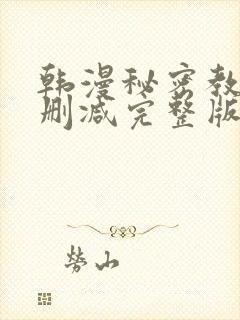 韩漫秘密教
删减完整版
劳山